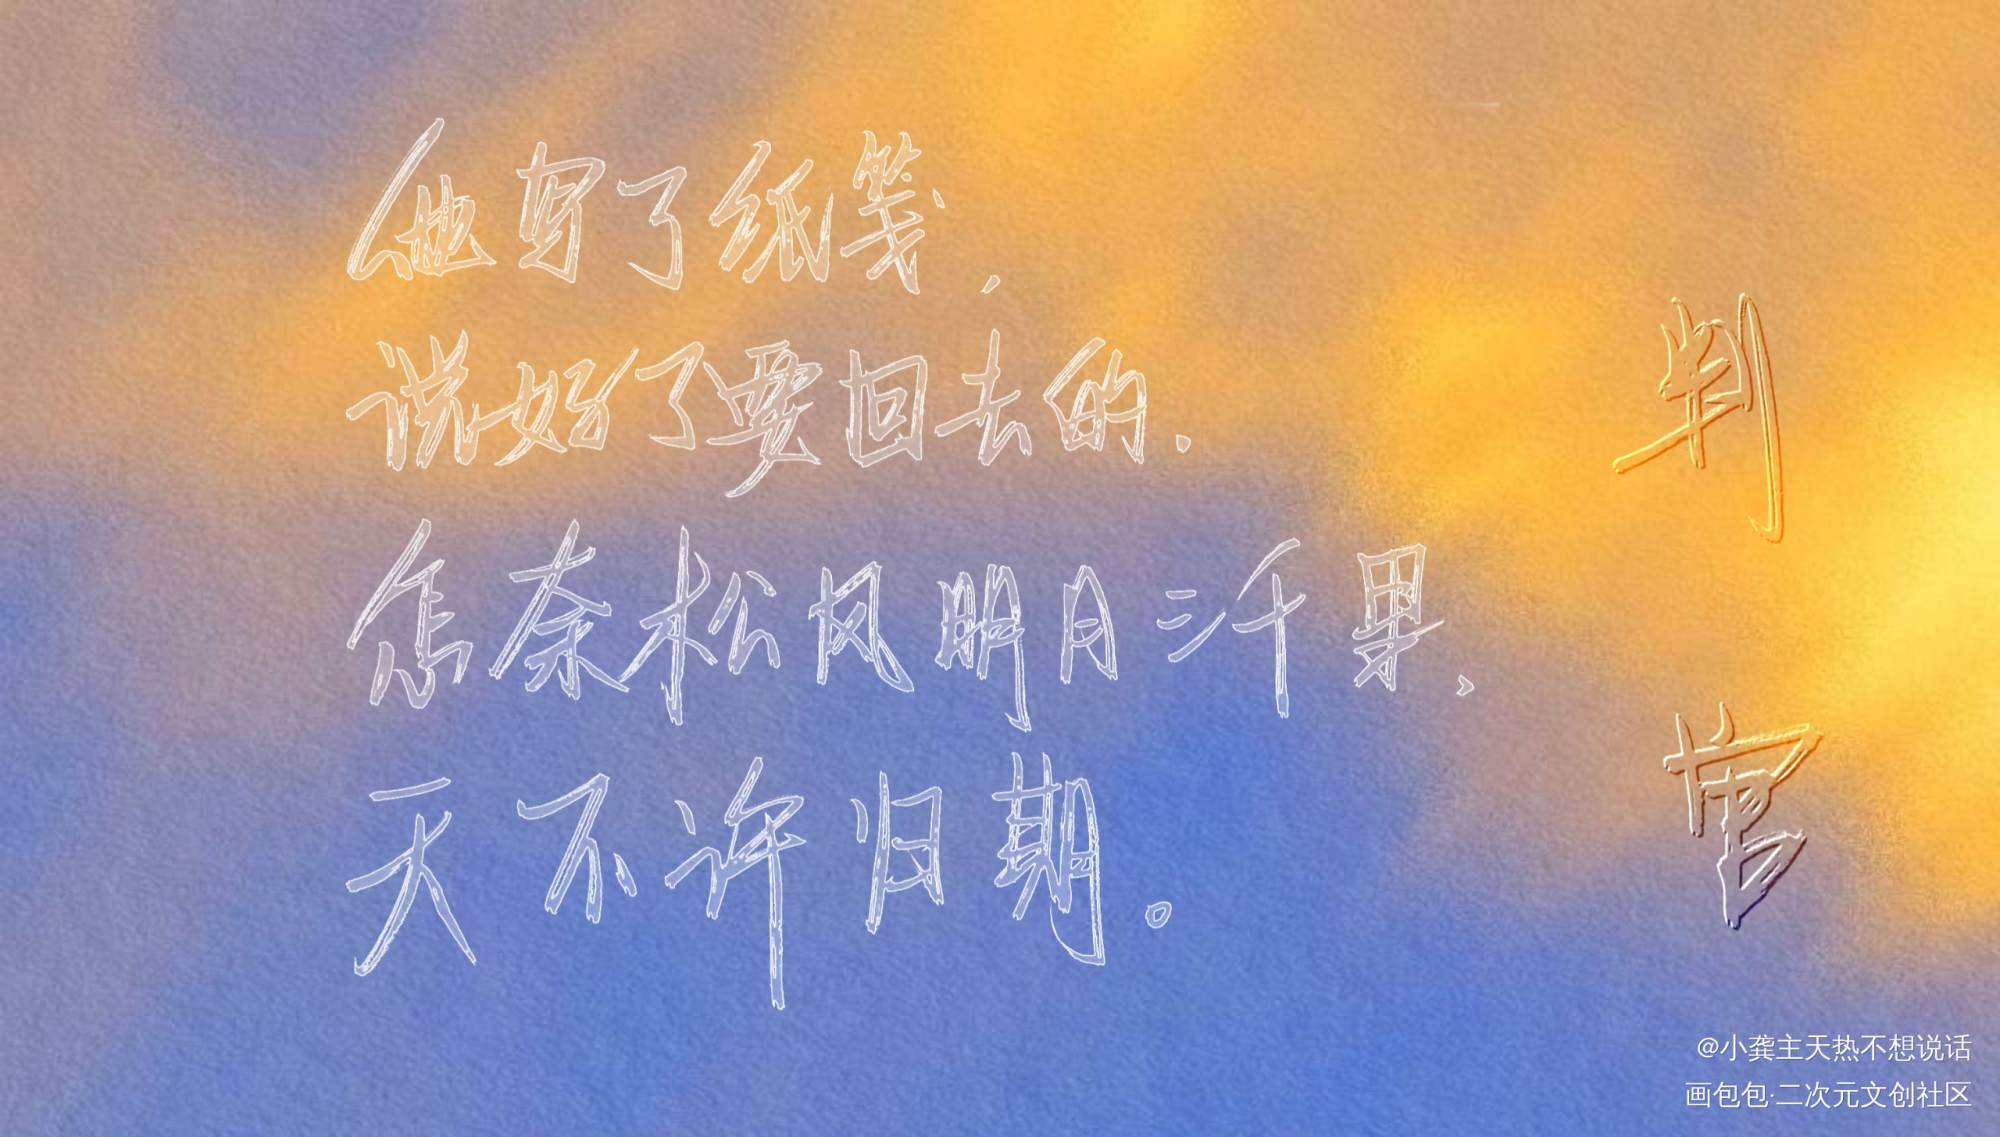 他写了纸笺，
说好了要回去的.
怎奈松风明月三千果、
天不许归期。
判官
@小龚主天热不想说话
画包包·二次元文创社区